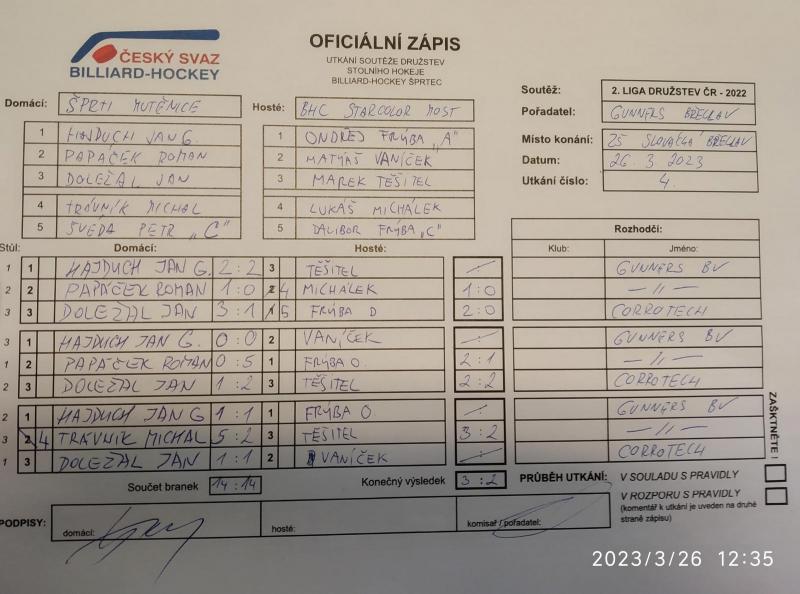 ČESKÝ SVAZ
BILLIARD-HOCKEY
OFICIÁLNÍ ZÁPIS
UTKÁNÍ SOUTĚŽE DRUŽSTEV
STOLNÍHO HOKEJE
BILLIARD-HOCKEY ŠPRTEC
Soutěž: 2. LIGA DRUŽSTEV ČR - 2022
Pořadatel: GUNNERS BŘECLAV
Místo konání: ZŠ SLOVÁCKÁ BŘECLAV
Datum: 26.3.2023
Utkání číslo: 4.
Domácí: ŠPRTI MUTĚNICE
Hosté: BHC STARCOLOR MOST
1 HAJDUCH JAN G. 1 ONDŘEJ FRÝBA "A"
2 PAPÁČEK ROMAN 2 MATYÁŠ VANÍČEK
3 DOLEŽAL JAN 3 MAREK TĚŠITEL
4 TRÁVNÍK MICHAL 4 LUKÁŠ MICHÁLEK
5 ŠVÉDA PETR "C" 5 DALIBOR FRÝBA "C"
Stůl: Domácí: Hosté:
Rozhodčí:
Klub: Jméno:
1 1 HAJDUCH JAN G. 2:2 3 TĚŠITEL -:- GUNNERS BV
2 2 PAPÁČEK ROMAN 1:0 4 MICHÁLEK 1:0 -||-
3 3 DOLEŽAL JAN 3:1 5 FRÝBA D 2:0 CORROTECH
3 1 HAJDUCH JAN G. 0:0 2 VANÍČEK -:- GUNNERS BV
1 2 PAPÁČEK ROMAN 0:5 1 FRÝBA O. 2:1 -||-
2 3 DOLEŽAL JAN 1:2 3 TĚŠITEL 2:2 CORROTECH
2 1 HAJDUCH JAN G 1:1 1 FRÝBA O. -:- GUNNERS BV
3 4 TRÁVNÍK MICHAL 5:2 3 TĚŠITEL 3:2 -||-
1 3 DOLEŽAL JAN 1:1 2 VANÍČEK -:- CORROTECH
ZAŠKTNĚTE !
Součet branek 14:14 Konečný výsledek 3:2
PRŮBĚH UTKÁNÍ: V SOULADU S PRAVIDLY
V ROZPORU S PRAVIDLY
(komentář k utkání je uveden na druhé
straně zápisu)
PODPISY: domácí: hosté: komisař / pořadatel:
2023/3/26 12:35